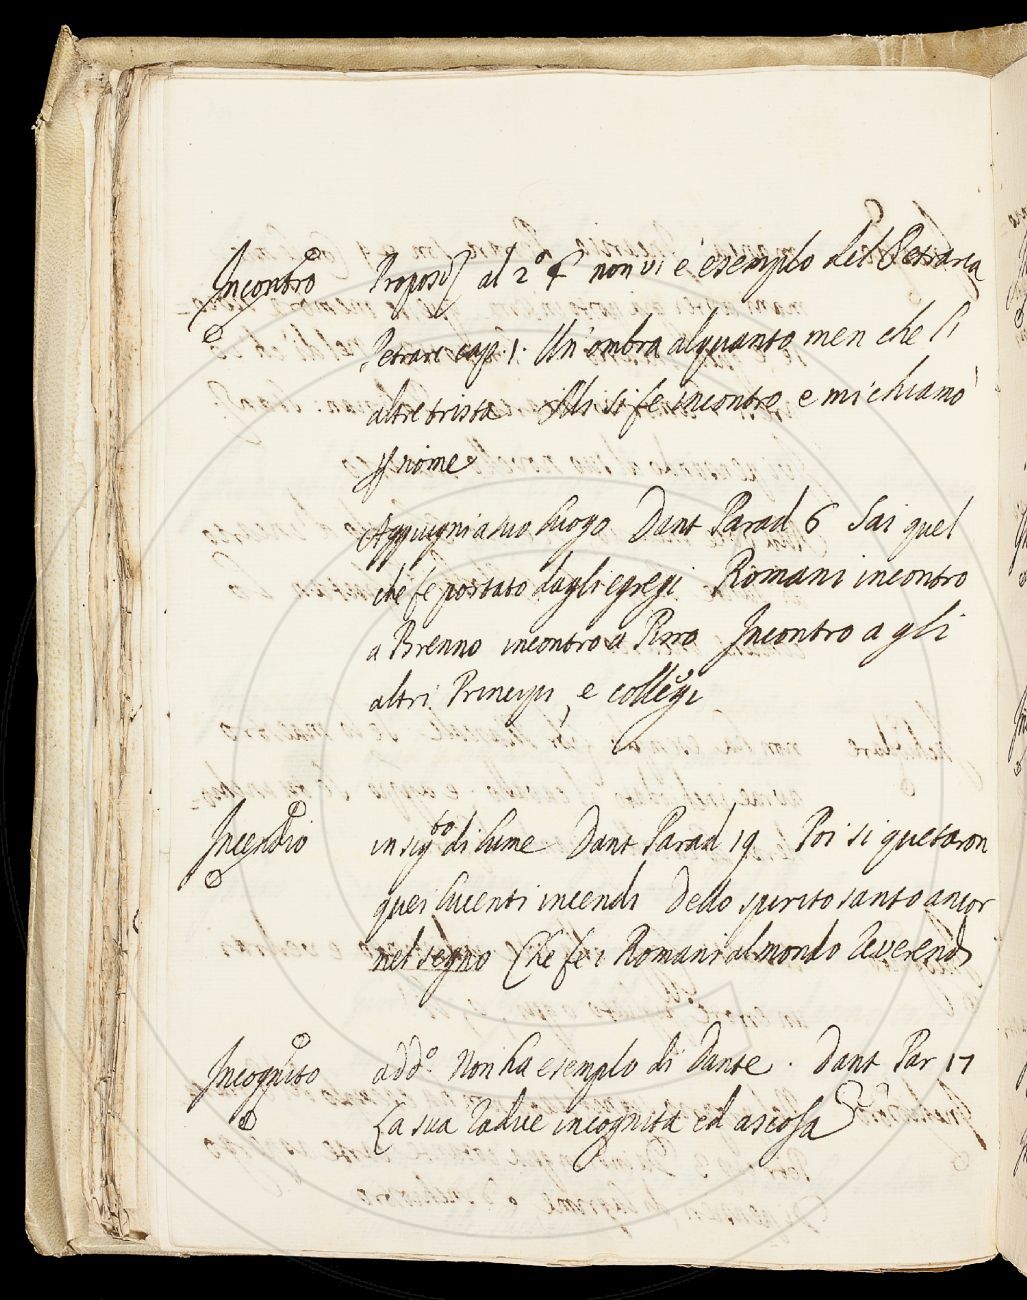 Incontro Proposiz al 2° § non vi è esempio del Petrarca
Petrarc cap. 1. Un'ombra alquanto men che l'
altre trista Mi si fe incontro e mi chiamò
p nome
Aggiugni a suo luogo Dant Parad 6 Sai quel
che fe portato dagli egregi Romani incontro
a Brenno incontro a Pirro Incontro a gli
altri Principi, e collegi
Incendio in sig.to di lume Dant Parad 19 Poi si quetaron
quei lucenti incendi Dello spirito santo ancor
nel segno Che fe i Romani al mondo reverendi
Incognito add.° Non ha esempio di Dante. Dant Par 17
La sua radice incognita ed ascosa